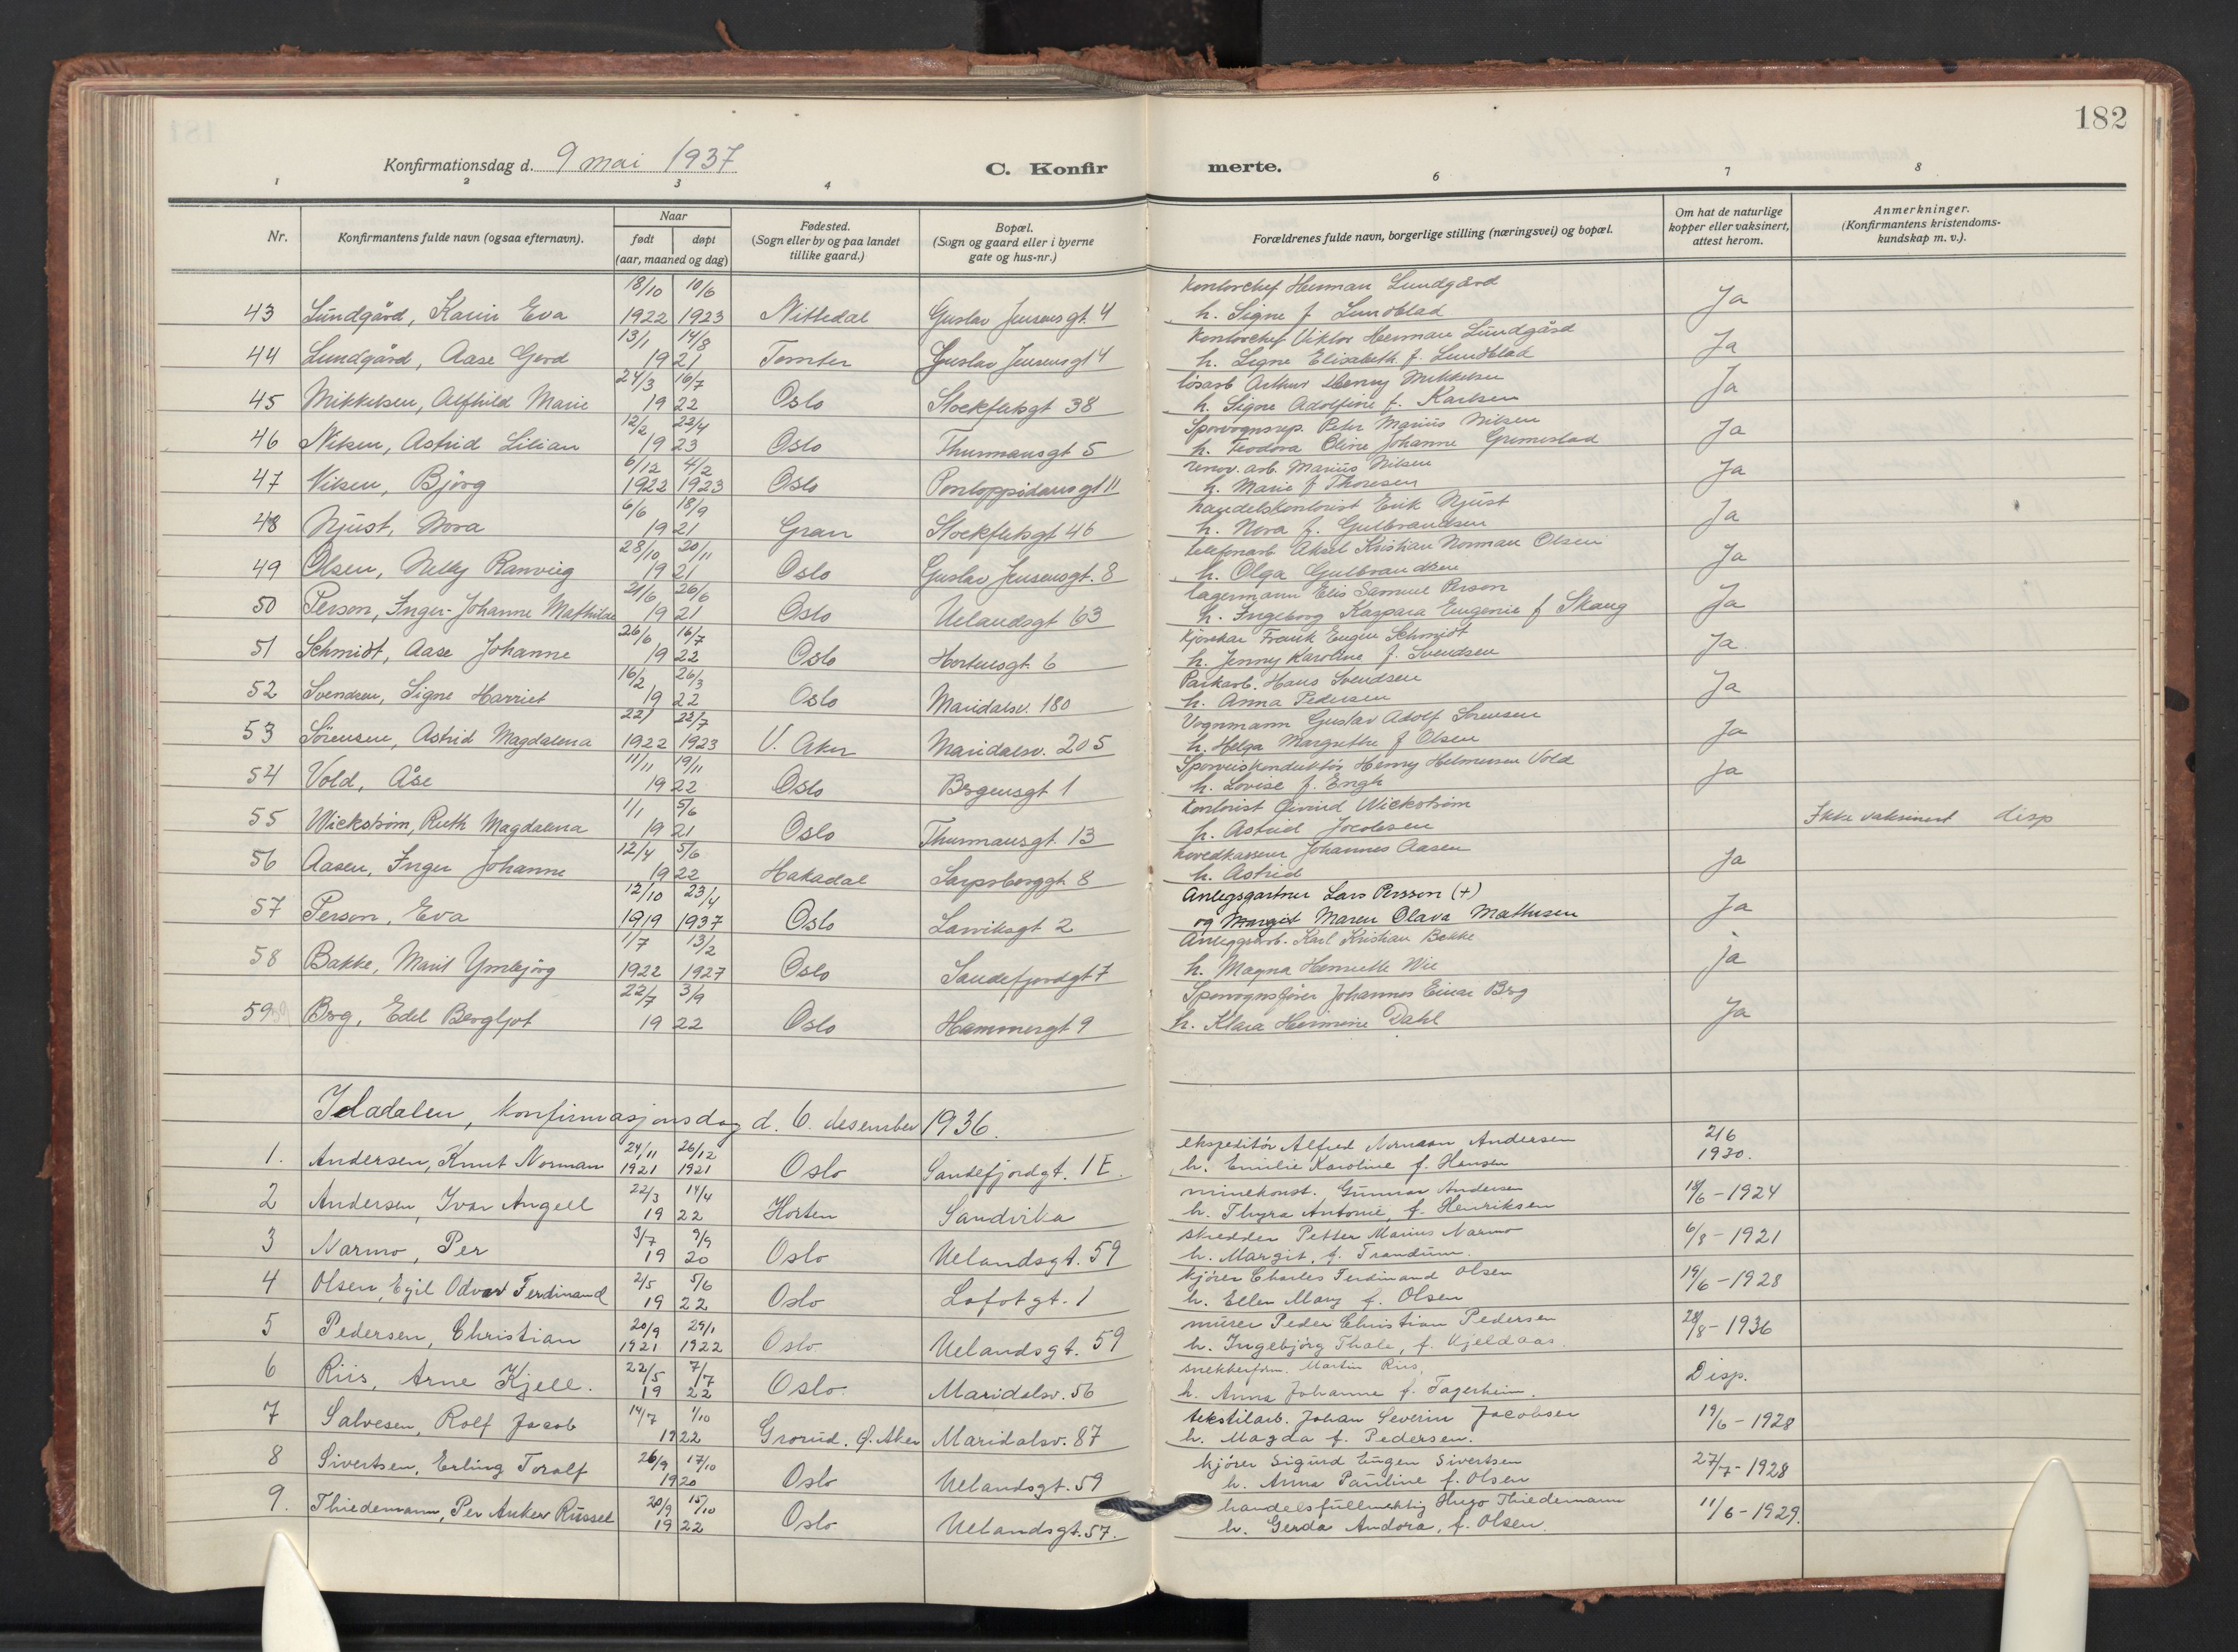 182
Konfirmationsdag d. 9 mai 1937
C. Konfirmerte.
1 2 3 4 6 7 8
Nr.
Konfirmantens fulde navn (ogsaa efternavn).
Naar
født døpt
(aar, maaned og dag)
Fødested.
(Sogn eller by og paa landet
tillike gaard.)
Bopæl.
(Sogn og gaard eller i byerne
gate og hus-nr.)
Forældrenes fulde navn, borgerlige stilling (næringsvei) og bopæl.
Om hat de naturlige
kopper eller vaksinert,
attest herom.
Anmerkninger.
(Konfirmantens kristendoms-
kundskap m. v.).
18/10 10/6 Kontorchef Herman Lundgård
43 Lundgård, Karin Eva 1922 1923 Nittedal Gustav Jensensgt. 4 h. Signe f Lundblad Ja
13/1 14/8 Kontorchef Viktor Herman Lundgård
44 Lundgård, Aase Gerd 1921 Tomter Gustav Jensensgt 4 h. Signe Elisabeth f. Lundblad Ja
24/3 16/7 løsarb Arthur Henry Mikkelsen
45 Mikkelsen, Alfhild Marie 1922 Oslo Stockfletsgt 38 h. Signe Adolfine f. Karlsen Ja
12/2 22/4 Sporvognsrep. Peter Marius Nilsen
46 Nilsen, Astrid Lilian 1923 Oslo Thurmansgt 5 h. Teodora Oline Johanne Grimestad Ja
6/12 4/2 renov. arb. Marius Nilsen
47 Nilsen, Bjørg 1922 1923 Oslo Pontoppidansgt 11 h. Marie f Thoresen Ja
6/6 18/9 handelskontorist Erik Njust
48 Njust, Nora 1921 Gran Stockfletsgt 46 h. Nora f. Gulbrandsen Ja
28/10 20/11 telefonarb Aksel Kristian Norman Olsen
49 Olsen, Nelly Ranveig 1921 Oslo Gustav Jensensgt. 8 h. Olga Gulbrandsen Ja
21/6 26/6 lagermann Elis Samuel Person
50 Person, Inger-Johanne Mathilde 1921 Oslo Uelandsgt 63 h. Ingeborg Kaspara Eugenie f Skaug Ja
26/6 16/7 Kjørekar Frank Eugen Schmidt
51 Schmidt, Aase Johanne 1922 Oslo Hortensgt. 6 h. Jenny Karoline f. Svendsen Ja
16/2 26/3 Parkarb. Hans Svendsen
52 Svendsen, Signe Harriet 1922 Oslo Maridalsv. 180 h. Anna Pedersen Ja
22/ 22/7 Vognmann Gustav Adolf Sørensen
53 Sørensen, Astrid Magdalena 1922 1923 V. Aker Maridalsv. 205 h. Helga Margrethe f Olsen Ja
11/11 19/11 Sporveiskonduktør Henry Helmersen Vold
54 Vold, Åse 1922 Oslo Bergensgt 1 h. Lovise f. Engh Ja
1/1 5/6 Kontorist Øivind Wickstrøm
55 Wickstrøm, Ruth Magdalena 1921 Oslo Thurmansgt. 13 h. Astrid Jacobsen Ikke vaksinert disp
12/4 5/6 hovedkasserer Johannes Aasen
56 Aasen, Inger Johanne 1922 Hakadal Sarpsborggt. 8 h. Astrid Ja
12/10 23/4 Anlegsgartner Lars Persson (+)
57 Person, Eva 1919 1937 Oslo Larviksgt 2 og Margit Maren Olava Mathisen Ja
1/7 13/2 Anleggsarb. Karl Kristian Bakke
58 Bakke, Marit Ymbjørg 1922 1927 Oslo Sandefjordgt 7 h. Magna Henriette Wie ja
22/7 3/9 Sporvognsfører Johannes Einar Berg
59 Berg, Edel Bergljot 1922 Oslo Hammersgt 9 h. Klara Hermine Dahl Ja
Iladalen, konfirmasjonsdag d. 6. desember 1936.
24/11 26/12 ekspeditør Alfred Norman Andersen 2/6
1. Andersen, Knut Norman 1921 1921 Oslo Sandefjordgt. 1 E. h. Emilie Karoline f. Hansen 1930.
22/3 14/4 minekonst. Gunnar Andersen
2 Andersen, Ivar Angell 1922 Horten Sandvika h. Thyra Antonie, f. Henriksen 18/6 - 1924
3/7 9/9 skredder Petter Marius Narmo
3 Narmo, Per 1920 Oslo Uelandsgt. 59 h. Margit, f. Trandum. 6/8 - 1921
2/5 5/6 kjører Charles Ferdinand Olsen
4 Olsen, Egil Odvar Ferdinand 1922 Oslo Lofotgt. 1 h. Ellen Mary f. Olsen 19/6 - 1928
20/9 29/1 murer Peder Christian Pedersen
5 Pedersen, Christian 1921 1922 Oslo Uelandsgt. 59 h. Ingebjørg Thale, f. Kjeldaas. 28/8 - 1936
22/5 7/7 snekkerform. Martin Riis.
6 Riis, Arne Kjell. 1922 Oslo. Maridalsv. 56 h. Anna Johanne f. Fagerheim. Disp.
14/7 1/10 tekstilarb. Johan Severin Jacobsen
7 Salvesen, Rolf Jacob 1922 Grorud. Ø. Aker Maridalsv. 87 h. Magda f. Pedersen. 19/6 - 1928
26/9 17/10 kjører Sigurd Eugen Sivertsen
8 Sivertsen, Erling Toralf 1920 Oslo Uelandsgt. 59 h. Anna Pauline f. Olsen 27/7 - 1928
20/9 15/10 handelsfullmektig Hugo Thiedemann
9. Thiedemann, Per Anker Russel 1922 Oslo Uelandsgt. 57. h. Gerda Andora, f. Olsen. 11/6 - 1929.